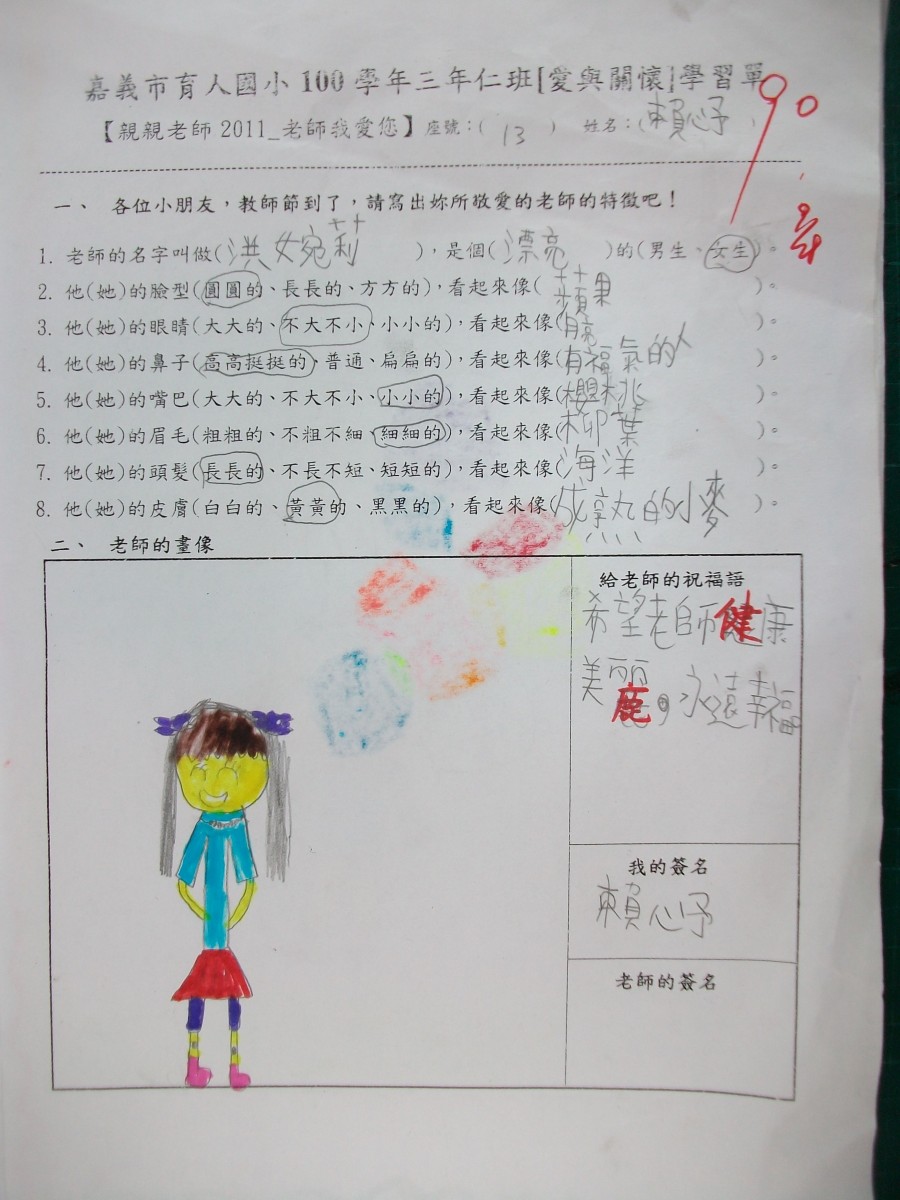 嘉義市育人國小100學年三年仁班[愛與關懷]學習單
【親親老師2011_老師我愛您】座號：( 13 ) 姓名：(賴心予)
90
一、 各位小朋友，教師節到了，請寫出妳所敬愛的老師的特徵吧！
1. 老師的名字叫做(洪女宛莉)，是個(漂亮)的(男生、女生)。
2. 他(她)的臉型(圓圓的、長長的、方方的)，看起來像(蘋果)。
3. 他(她)的眼睛(大大的、不大不小、小小的)，看起來像()。
4. 他(她)的鼻子(高高挺挺的、普通、扁扁的)，看起來像(有福氣的人)。
5. 他(她)的嘴巴(大大的、不大不小、小小的)，看起來像(櫻桃)。
6. 他(她)的眉毛(粗粗的、不粗不細、細細的)，看起來像(柳葉)。
7. 他(她)的頭髮(長長的、不長不短、短短的)，看起來像(海洋)。
8. 他(她)的皮膚(白白的、黃黃的、黑黑的)，看起來像(成熟的小麥)。
二、 老師的畫像
給老師的祝福語
希望老師健康
美麗，永遠幸福
我的簽名
賴心予
老師的簽名